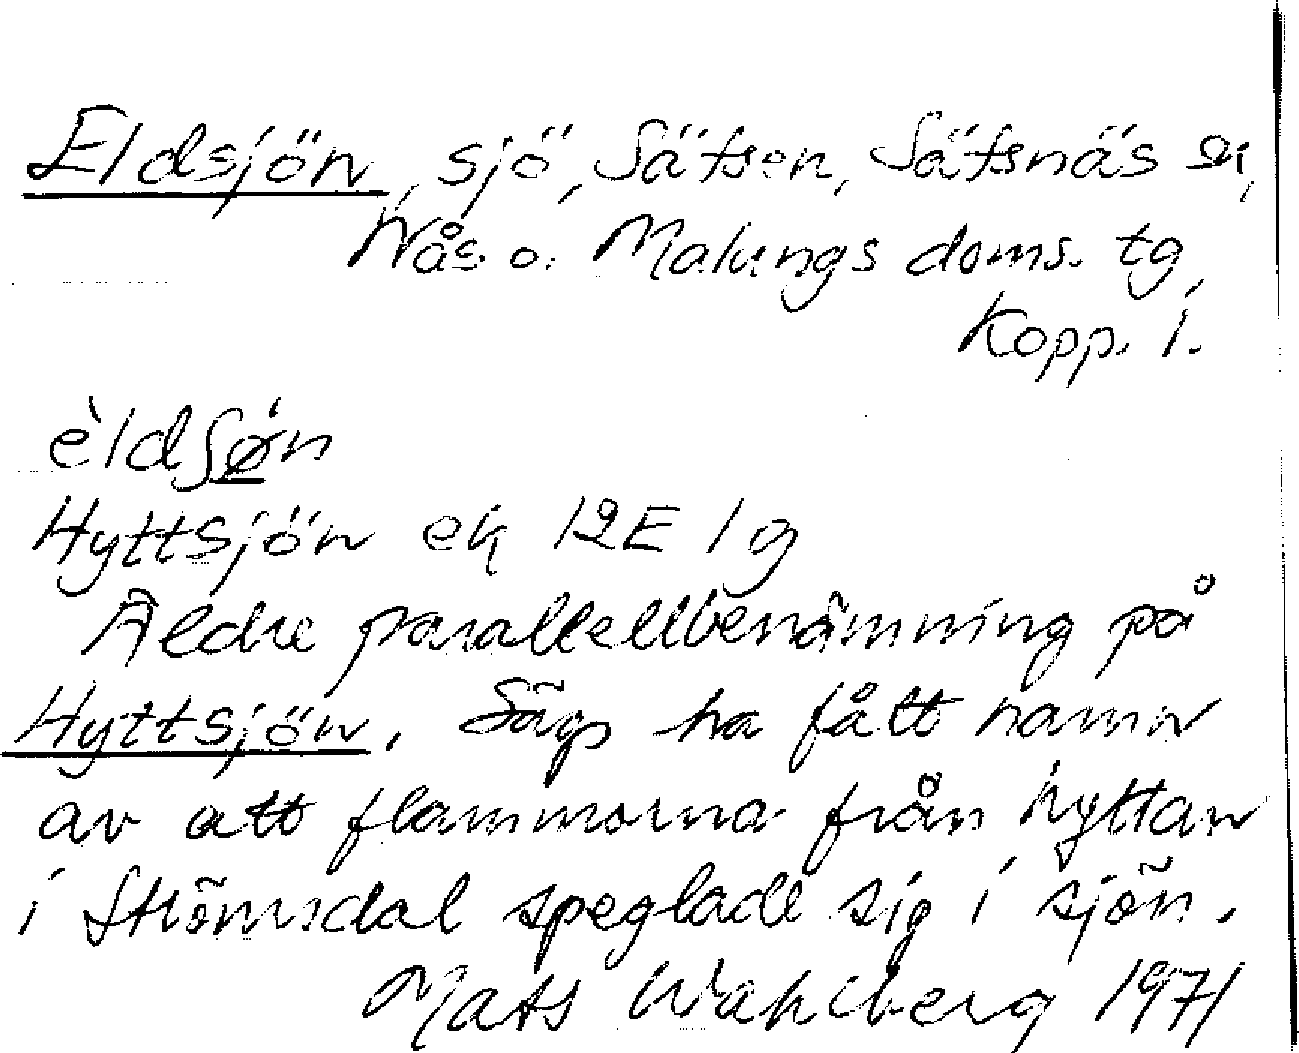 Eldsjön, sjö, Sätsen, Sätsnäs sn,
Nås o. Malungs doms. tg,
Kopp. l.
èldʃǿ̱n
Hyttsjön ek 12E 1g
Äldre parallellbenämning på
Hyttsjön. Sägs ha fått namn
av att flammorna från hyttan
i Strömsdal speglade sig i sjön.
Mats Wahlberg 1971